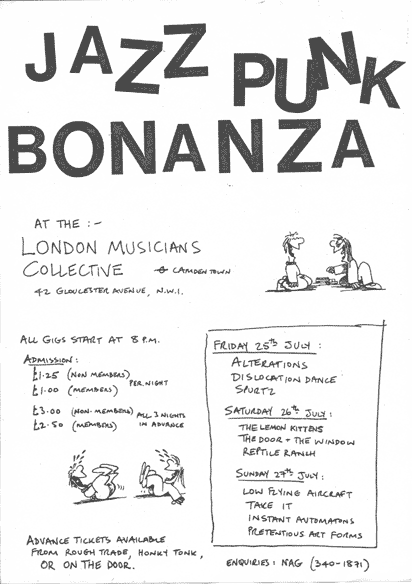 JAZZ PUNK
BONANZA
AT THE :-
LONDON MUSICIANS
COLLECTIVE
CAMDEN TOWN
42 GLOUCESTER AVENUE, N.W.1.
ALL GIGS START AT 8 P.M.
ADMISSION:
£1.25 (NON MEMBERS)
£1.00 (MEMBERS)
PER NIGHT
£3.00 (NON-MEMBERS)
£2.50 (MEMBERS)
ALL 3 NIGHTS
IN ADVANCE
FRIDAY 25TH JULY:
ALTERATIONS
DISLOCATION DANCE
SPURTZ
SATURDAY 26TH JULY:
THE LEMON KITTENS
THE DOOR + THE WINDOW
REPTILE RANCH
SUNDAY 27TH JULY:
LOW FLYING AIRCRAFT
TAKE IT
INSTANT AUTOMATONS
PRETENTIOUS ART FORMS
ADVANCE TICKETS AVAILABLE
FROM ROUGH TRADE, HONKY TONK,
OR ON THE DOOR.
ENQUIRIES: NAG (340-1871)